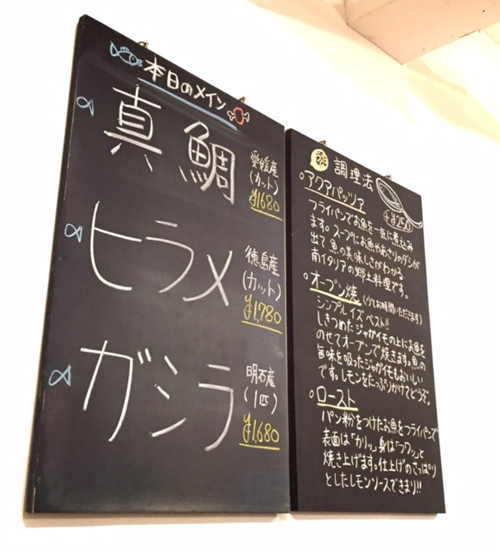 本日のメイン
真鯛
愛媛産
(カット)
¥1680
ヒラメ
徳島産
(カット)
¥1,780
ガシラ
明石産
(1匹)
¥1,680
調理法
アクアパッツァ
+¥250
フライパンでお魚を一気に煮込み
ます。スープにお魚やあさりのダシが
出て魚の美味しさがわかる
南イタリアの郷土料理です。
オーブン焼(少しお時間いただきます)
シンプルイズベスト!!
しきつめたジャガイモの上にお魚を
のせてオーブンで焼きます。魚の
旨味を吸ったジャガイモもおいしい
です。レモンをたっぷりかけてどうぞ。
ロースト
パン粉をつけたお魚をフライパンで
表面は「カリッ」身は「フワッ」と
焼き上げます。仕上げのさっぱり
としたレモンソースできまり!!